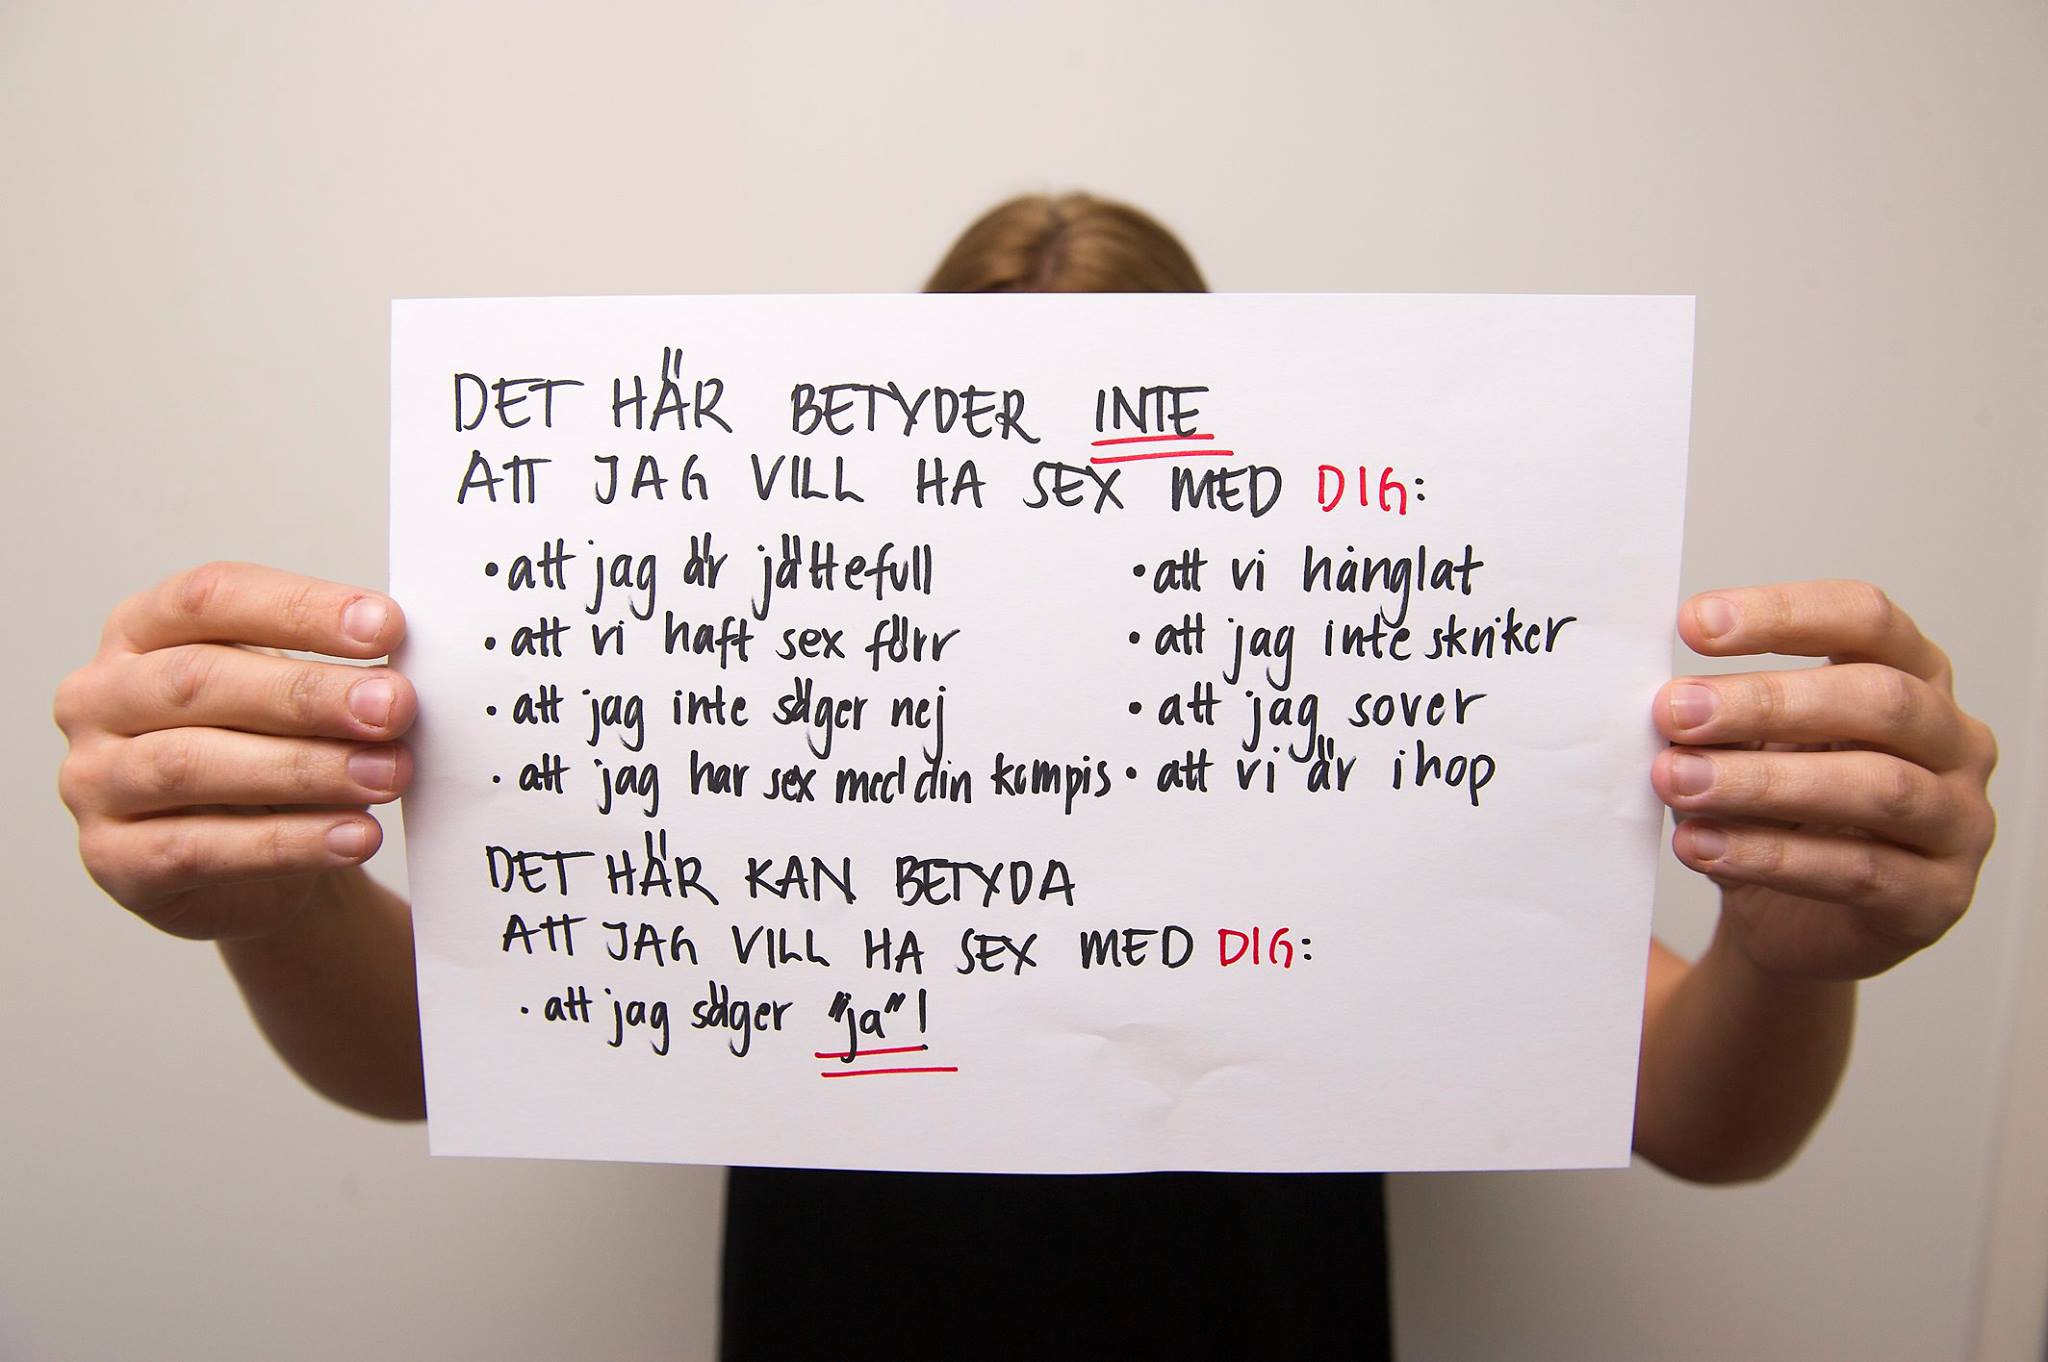 DET HÄR BETYDER INTE
ATT JAG VILL HA SEX MED DIG:
• att jag är jättefull
• att vi haft sex förr
• att jag inte säger nej
• att jag har sex med din kompis
• att vi hånglat
• att jag inte skriker
• att jag sover
• att vi är ihop
DET HÄR KAN BETYDA
ATT JAG VILL HA SEX MED DIG:
• att jag säger "ja"!